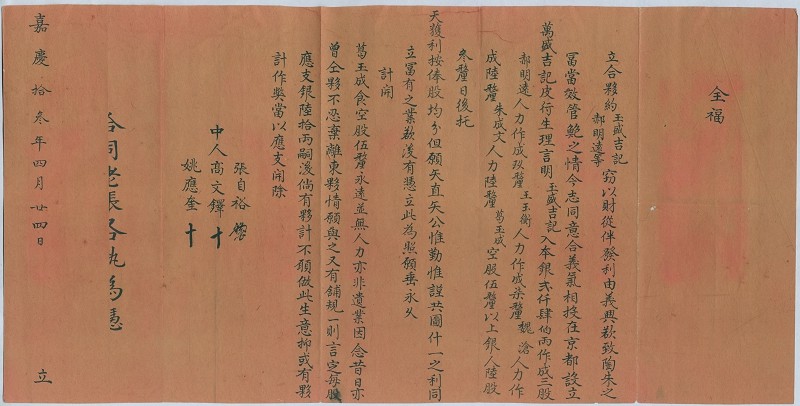 全福
立合夥約王盛吉記郝明遠等竊以財從伴發利由義興欲致陶朱之
富當效管鮑之情今志同意合義氣相投在京都設立
萬盛吉記皮行生理言明王盛吉記入本銀弍仟肆伯兩作成三股
郝明遠人力作成玖釐王玉衡人力作成柒釐魏滄人力作
成陸釐朱成大人力陸釐葛玉成空股伍釐以上銀人陸股
叁釐日後托
天護利按俸股均分但願矢直矢公惟勤惟謹共圖什一之利同
立冨有之業欲後有憑立此為照願垂永久
計開
葛玉成食空股伍釐永遠並無人力亦非遺業因念昔日亦
曾仝夥不忍棄離東夥情願與之又有舖規一則言定每股
應支銀陸拾兩嗣後倘有夥計不願做此生意抑或有夥
計作獘當以應支開除
張自裕
中人高文鐸十
姚應奎十
合同老張各執為憑
嘉慶拾叁年四月廿四日 立